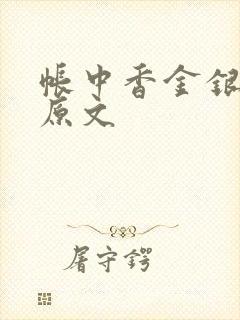 帐中香金银
原文
屠守锷